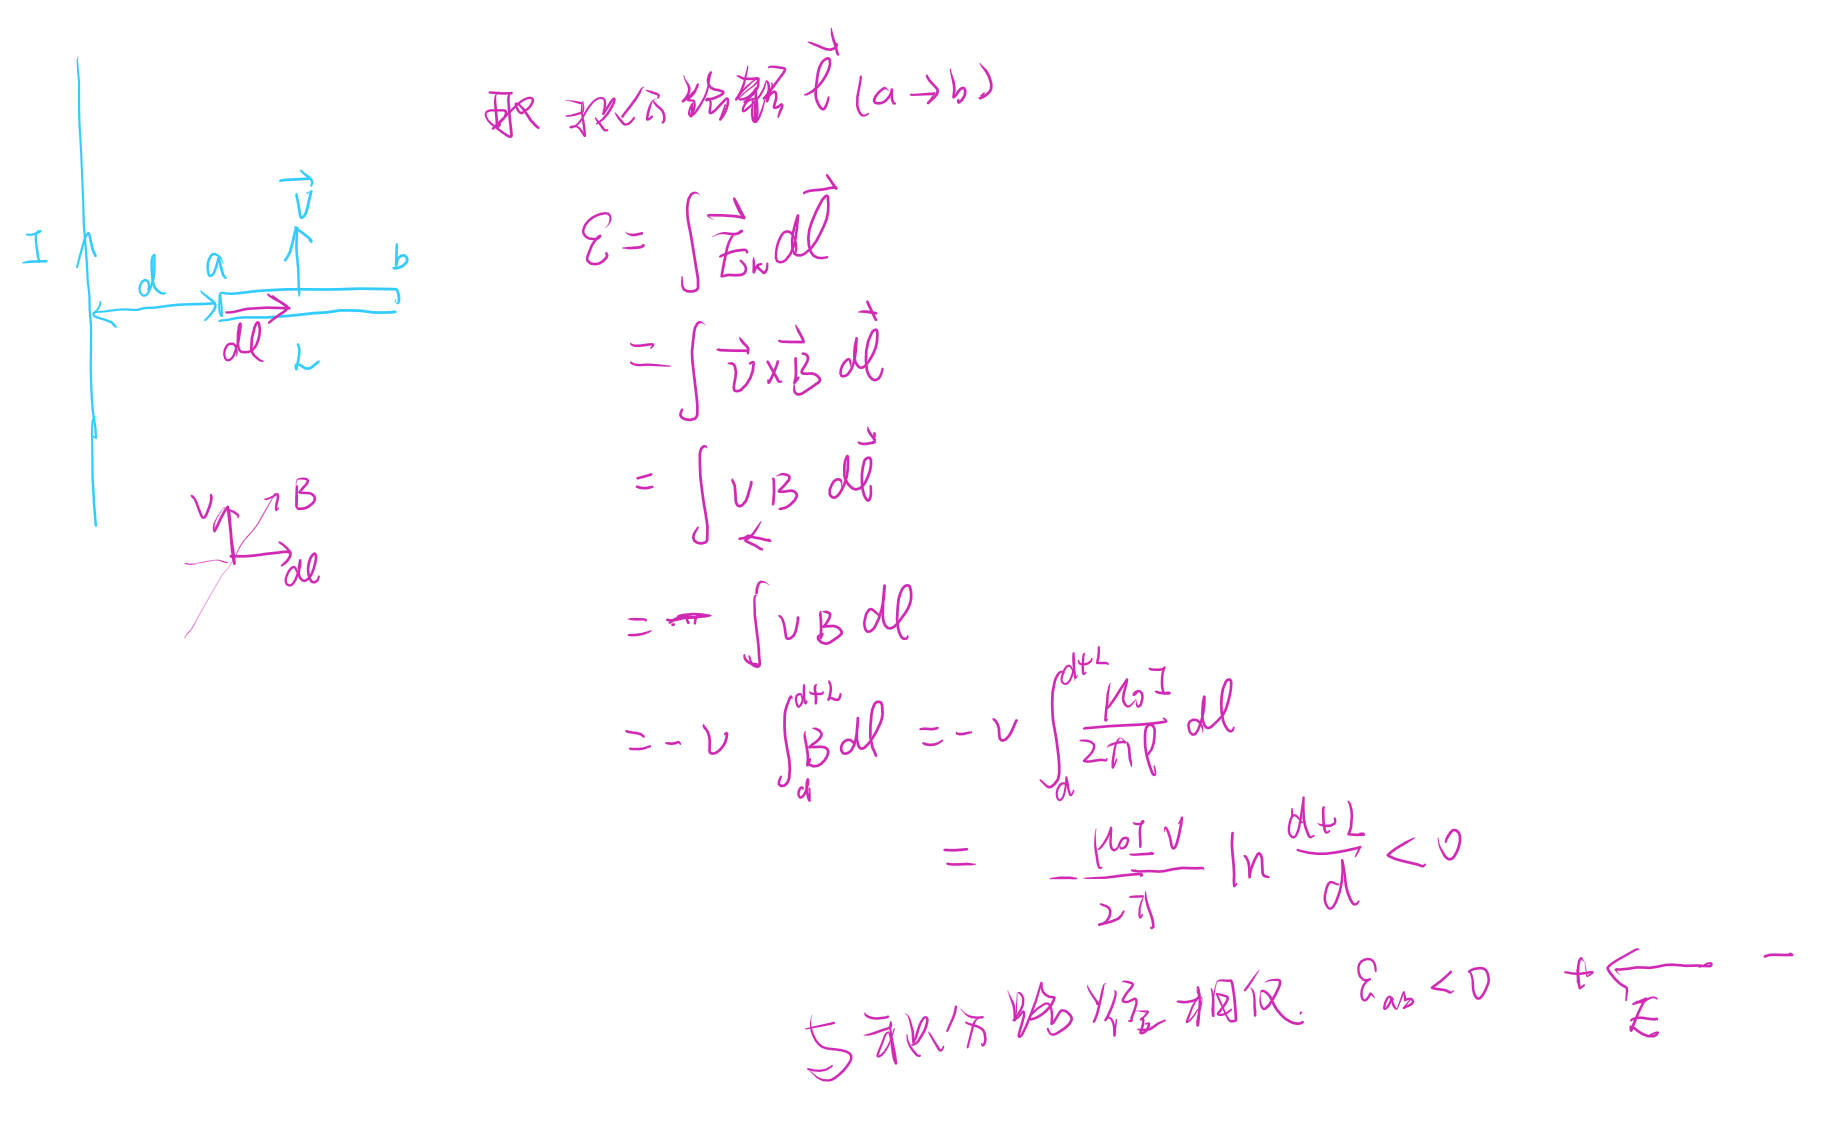 取 积分路径 l⃗ (a→b)
I
d
a
v⃗
b
dl
L
v
B
dl
ε = ∫ E⃗ₖ dl⃗
= ∫ v⃗ × B⃗ dl⃗
= ∫ v B dl⃗
←
= - ∫ v B dl
= - v ∫_d^{d+L} B dl = - v ∫_d^{d+L} μ₀I/2πl dl
= -μ₀Iv/2π ln (d+L)/d < 0
与积分路径相反. ε_ab < 0 + ← -
E